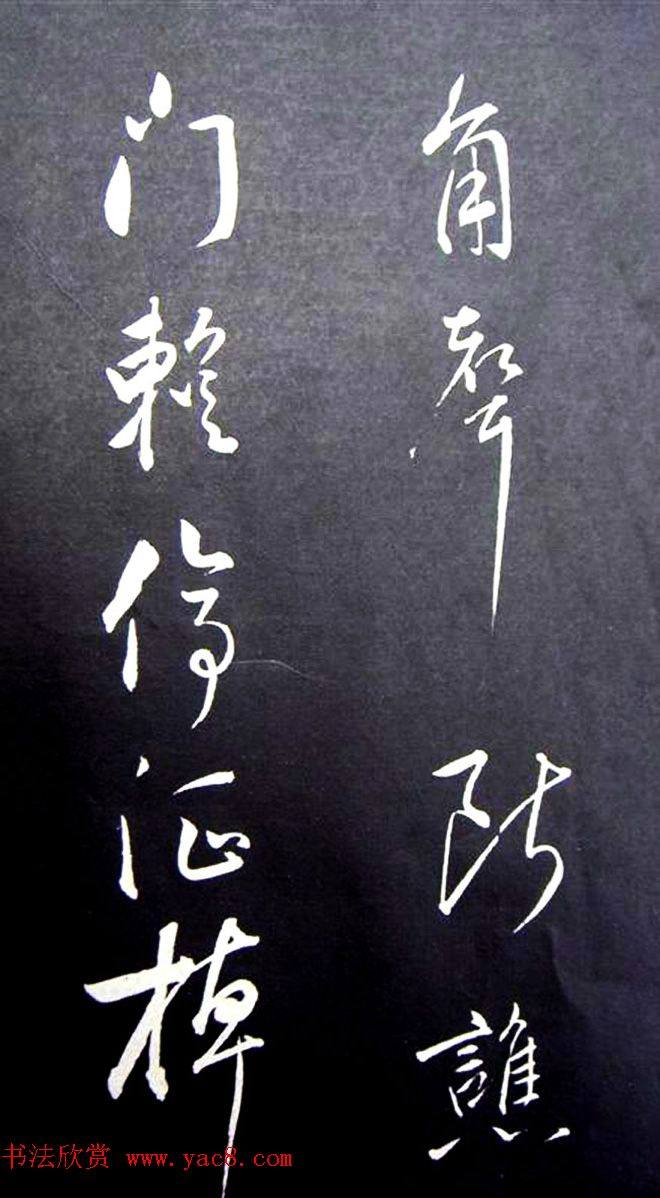 角聲断譙
门暫停征棹
书法欣赏 www.yac8.com